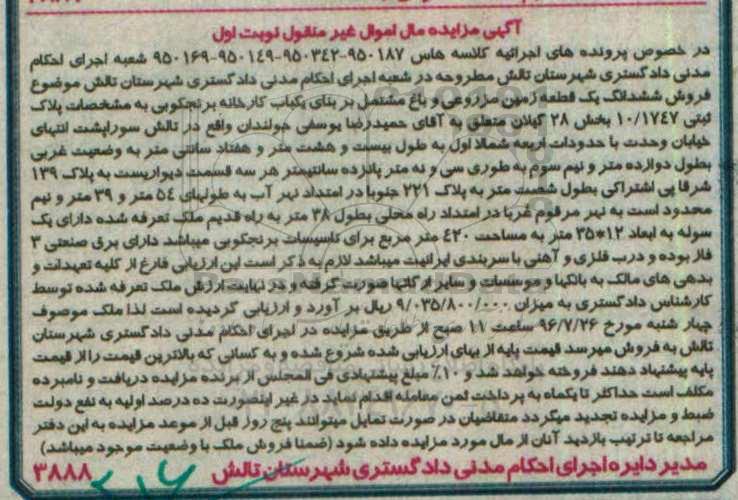 آگهی مزایده مال اموال غیر منقول نوبت اول
در خصوص پرونده های اجرائیه کلاسه هاس ۹۵۰۱۸۷-۹۵۰۳۴۲-۹۵۰۱۴۹-۹۵۰۱۶۹ شعبه اجرای احکام
مدنی دادگستری شهرستان تالش مطروحه در شعبه اجرای احکام مدنی دادگستری شهرستان تالش موضوع
فروش ششدانگ یک قطعه زمین مزروعی و باغ مشتمل بر بنای یکباب کارخانه برنجکوبی به مشخصات پلاک
ثبتی ۱۰/۱۷۴۷ بخش ۲۸ گیلان متعلق به آقای حمیدرضا یوسفی جولندان واقع در تالش سوراپشت انتهای
خیابان وحدت با حدودات اربعه شمالا اول به طول بیست و هشت متر و هفتاد سانتی متر به وضعیت غربی
بطول دوازده متر و نیم سوم به طوری سی و نه متر پانزده سانتیمتر هر سه قسمت دیواریست به پلاک ۱۳۹
شرقا پی اشتراکی بطول شصت متر به پلاک ۲۲۱ جنوبا در امتداد نهر آب به طولهای ۵۴ متر و ۳۹ متر و نیم
محدود است به نهر مرقوم غربا در امتداد راه محلی بطول ۳۸ متر به راه قدیم ملک تعرفه شده دارای یک
سوله به ابعاد ۱۲*۳۵ متر به مساحت ۴۲۰ متر مربع برای تاسیسات برنجکوبی میباشد دارای برق صنعتی ۳
فاز بوده و درب فلزی و آهنی با سربندی ایرانیت میباشد لازم به ذکر است این ارزیابی فارغ از کلیه تعهدات و
بدهی های مالک به بانکها و موسسات و سایر ارگانها صورت گرفته و در نهایت ارزش ملک تعرفه شده توسط
کارشناس دادگستری به میزان ۹/۰۳۵/۸۰۰/۰۰۰ ریال بر آورد و ارزیابی گردیده است لذا ملک موصوف
چهار شنبه مورخ ۹۶/۷/۲۶ ساعت ۱۱ صبح از طریق مزایده در اجرای احکام مدنی دادگستری شهرستان
تالش به فروش میرسد قیمت پایه از بهای ارزیابی شده شروع شده و به کسانی که بالاترین قیمت را از قیمت
پایه پیشنهاد دهند فروخته خواهد شد و ۱۰٪ مبلغ پیشنهادی فی المجلس از برنده مزایده دریافت و نامبرده
مکلف است حداکثر تا یکماه به پرداخت ثمن معامله اقدام نماید در غیر اینصورت ده درصد اولیه به نفع دولت
ضبط و مزایده تجدید میگردد متقاضیان در صورت تمایل میتوانند پنج روز قبل از موعد مزایده به این دفتر
مراجعه تا ترتیب بازدید آنان از مال مورد مزایده داده شود (ضمنا فروش ملک با وضعیت موجود میباشد)
مدیر دایره اجرای احکام مدنی دادگستری شهرستان تالش ۳۸۸۸